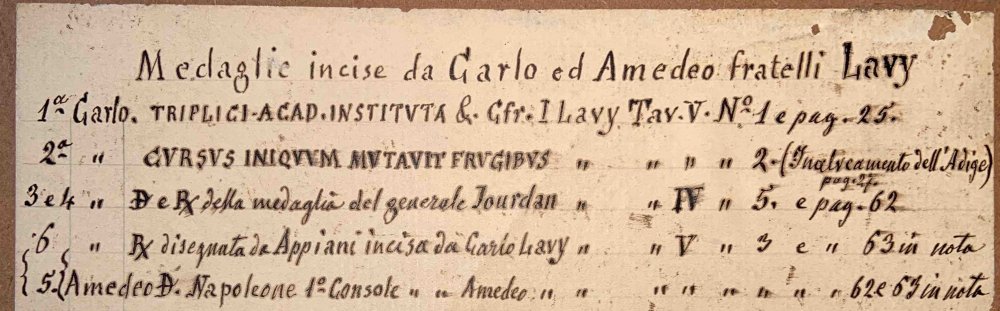 Medaglie incise da Carlo ed Amedeo fratelli Lavy
1ª Carlo. TRIPLICI·ACAD·INSTITVTA &. Cfr. I Lavy Tav. V. Nº 1 e pag. 25.
2ª " CVRSVS INIQVVM MVTAVIT FRVGIBVS " " " " 2. (Inalveamento dell'Adige)
pag. 27.
3 e 4 " D e R della medaglia del generale Jourdan " " IV " 5. e pag. 62
6 " R disegnata da Appiani incisa da Carlo Lavy " " V " 3 e " 63 in nota
5. Amedeo D. Napoleone 1º Console " " Amedeo " " " " " " " " 62 e 63 in nota